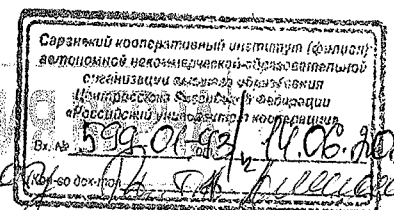 Саранский кооперативный институт (филиал)
автономной некоммерческой образовательной
организации высшего образования
Центросоюза Российской Федерации
«Российский университет кооперации»
Вх. № 599.01-93/ 14.06.20
(Кол-во док-тов